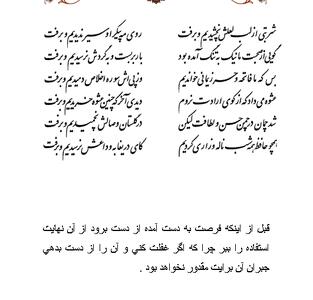 شربتی از لب لعلش نچشیدیم و برفت
روی مه پیکر او سیر ندیدیم و برفت
گویی از صحبت ما نیک به تنگ آمده بود
بار بربست و به گردش نرسیدیم و برفت
بس که ما فاتحه و حرز یمانی خواندیم
وز پی‌اش سوره اخلاص دمیدیم و برفت
عشوه می‌داد که از کوی ارادت نروم
دیدی آخر که چنین عشوه خریدیم و برفت
شد چمان در چمن حسن و لطافت لیکن
در گلستان وصالش نچمیدیم و برفت
همچو حافظ همه شب ناله و زاری کردیم
کای دریغا به وداعش نرسیدیم و برفت
قبل از اینکه فرصت به دست آمده از دست برود از آن نهایت
استفاده را ببر چرا که اگر غفلت کني و آن را از دست بدهي
جبران آن برایت مقدور نخواهد بود .